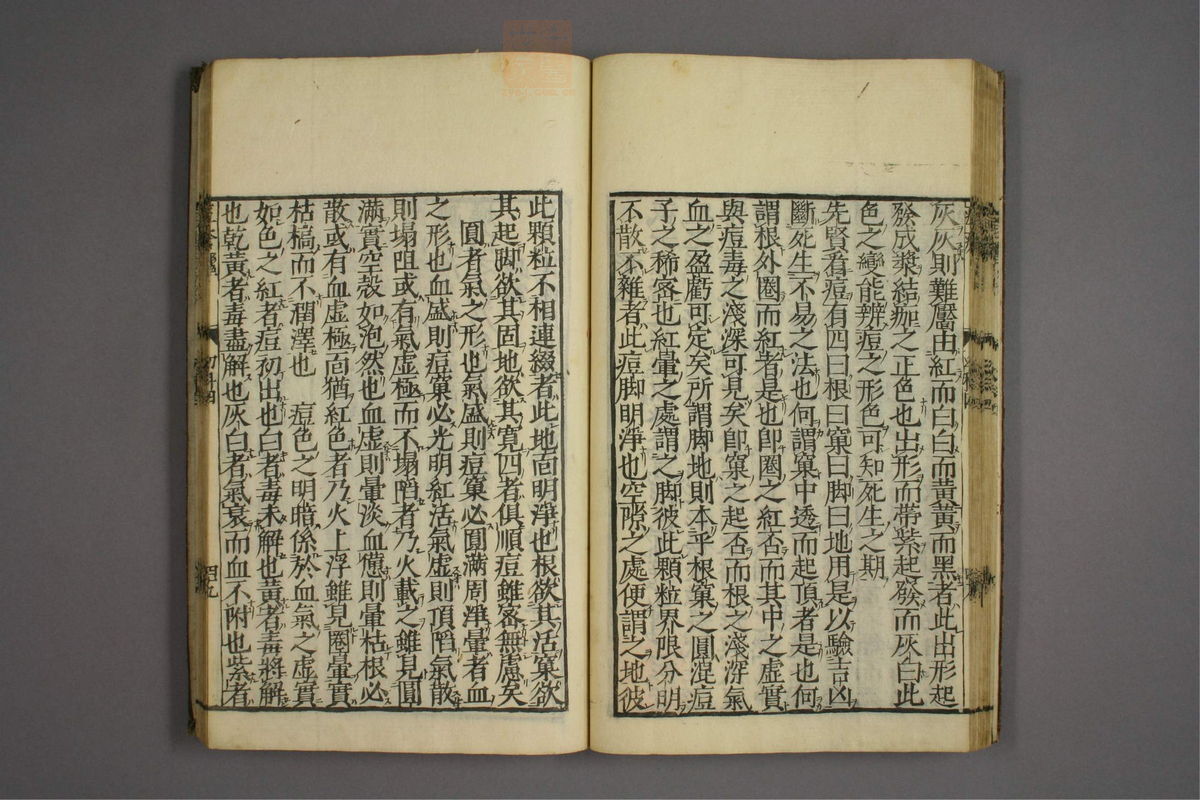 灰灰則難靨由紅而白白而黃黃而黑者此出形起
發成漿結痂之正色也出形而帶紫起發而灰白此
色之變能辨痘之形色可知死生之期
先賢看痘有四曰根曰窠曰脚曰地用是以驗吉凶
斷死生不易之法也何謂窠中透而起頂者是也何
謂根外圈而紅者是也卽圈之紅否而其中之虛實
與痘毒之淺深可見矣卽窠之起否而根之淺深氣
血之盈虧可定矣所謂脚地則本乎根窠之圓混痘
子之稀密也紅暈之處謂之脚彼此顆粒界限分明
不散不雜者此痘脚明淨也空隙之處便謂之地彼
此顆粒不相連綴者此地面明淨也根欲其活窠欲
其起脚欲其固地欲其寬四者俱順痘雖密無慮矣
圓者氣之形也氣盛則痘窠必圓滿周淨暈者血
之形也血盛則痘窠必光明紅活氣虛則頂陷氣散
則塌阻或有氣虛極而不塌陷者乃火載之雖見圓
滿實空殼如泡然也血虛則暈淡血憊則暈枯根必
散或有血虛極面猶紅色者乃火上浮雖見圈暈實
枯槁而不潤澤也　痘色之明暗係於血氣之虛實
如色之紅者痘初出也白者毒未解也黃者毒將解
也乾黃者毒盡解也灰白者氣衰而血不附也紫者